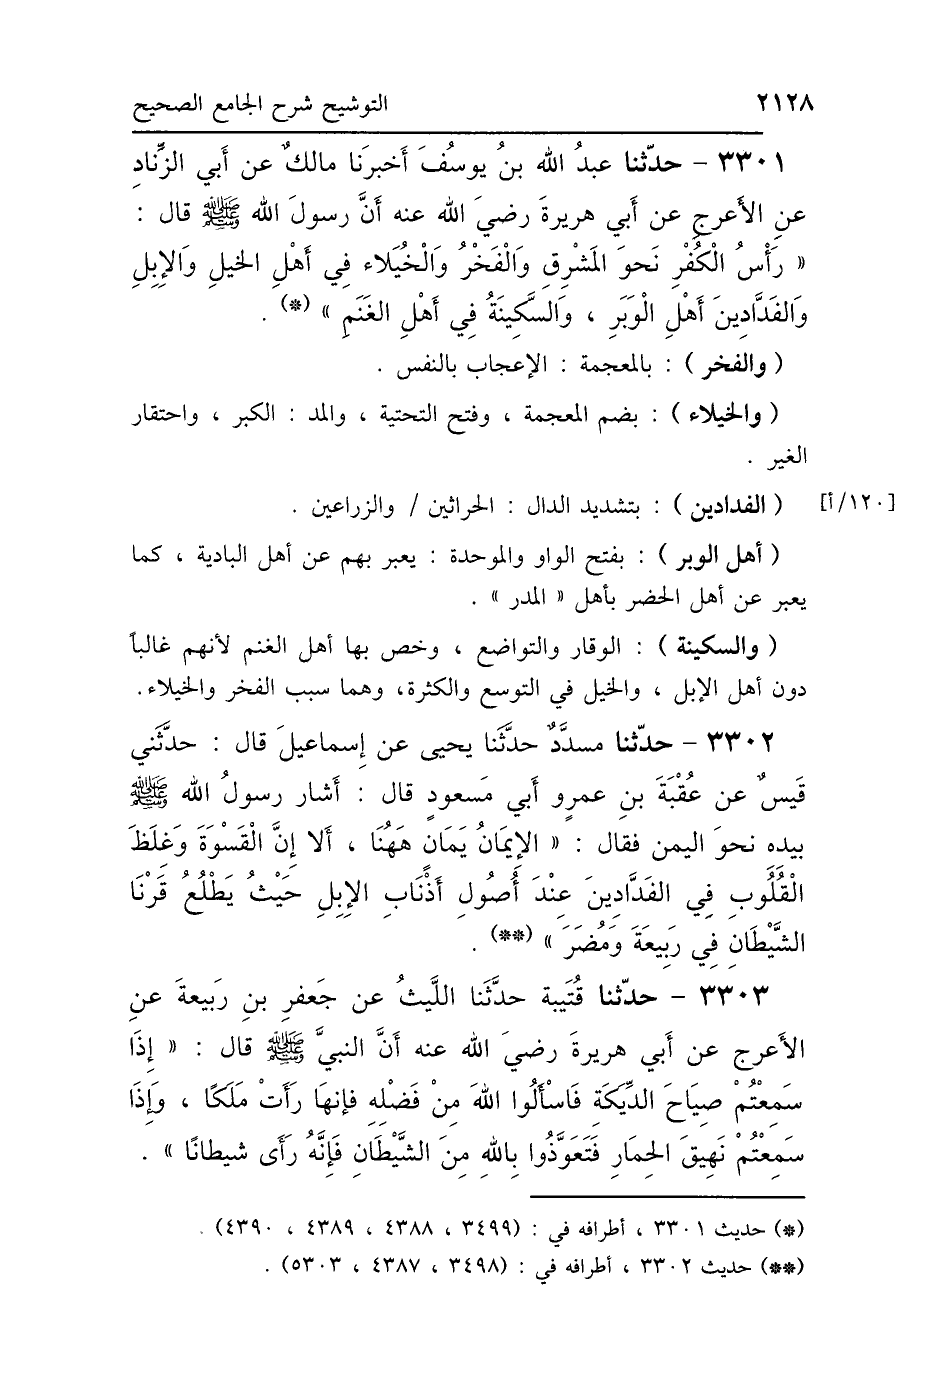 ٢١٢٨ التوشيح شرح الجامع الصحيح
٣٣٠١ – حدّثنا عبدُ الله بنُ يوسُفَ أخبرَنا مالكٌ عن أبي الزِّنادِ
عنِ الأعرجِ عن أبي هريرةَ رضيَ الله عنه أنَّ رسولَ الله ﷺ قال :
« رَأْسُ الْكُفْرِ نَحوَ المَشرِقِ وَالْفَخْرُ وَالْخُيَلاء فِي أَهْلِ الخيلِ وَالإِبِلِ
وَالفَدَّادِينَ أَهْلِ الْوَبَرِ ، وَالسَّكِينَةُ فِي أَهْلِ الغَنَمِ » (*) .
( والفخر ) : بالمعجمة : الإعجاب بالنفس .
( والخيلاء ) : بضم المعجمة ، وفتح التحتية ، والمد : الكبر ، واحتقار
الغير .
[١٢٠/أ] ( الفدادين ) : بتشديد الدال : الحراثين / والزراعين .
( أهل الوبر ) : بفتح الواو والموحدة : يعبر بهم عن أهل البادية ، كما
يعبر عن أهل الحضر بأهل « المدر » .
( والسكينة ) : الوقار والتواضع ، وخص بها أهل الغنم لأنهم غالباً
دون أهل الإبل ، والخيل في التوسع والكثرة، وهما سبب الفخر والخيلاء.
٣٣٠٢ – حدّثنا مسدَّدٌ حدَّثَنا يحيى عن إسماعيلَ قال : حدَّثَني
قَيسٌ عن عُقْبَةَ بنِ عمرٍو أبي مَسعودٍ قال : أشار رسولُ الله ﷺ
بيده نحوَ اليمن فقال : « الإِيمَانُ يَمَانٍ هَهُنَا ، أَلا إِنَّ الْقَسْوَةَ وَغَلَظَ
الْقُلُوبِ فِي الفَدَّادِينَ عِنْدَ أُصُولِ أَذْنَابِ الإِبِلِ حَيْثُ يَطْلُعُ قَرْنَا
الشَّيْطَانِ فِي رَبِيعَةَ وَمُضَرَ » (**) .
٣٣٠٣ – حدّثنا قُتَيبة حدَّثَنا اللَّيثُ عن جَعفرِ بنِ رَبيعةَ عنِ
الأعرج عن أبي هريرةَ رضيَ الله عنه أنَّ النبيَّ ﷺ قال : « إِذَا
سَمِعْتُمْ صِيَاحَ الدِّيَكَةِ فَاسْأَلُوا اللهَ مِنْ فَضْلِهِ فإِنهَا رَأَتْ مَلَكًا ، وَإِذَا
سَمِعْتُمْ نَهِيقَ الحِمَارِ فَتَعَوَّذُوا بِاللهِ مِنَ الشَّيْطَانِ فَإِنَّهُ رَأَى شيطانًا » .
(*) حديث ٣٣٠١ ، أطرافه في : (٣٤٩٩ ، ٤٣٨٨ ، ٤٣٨٩ ، ٤٣٩٠) .
(**) حديث ٣٣٠٢ ، أطرافه في : (٣٤٩٨ ، ٤٣٨٧ ، ٥٣٠٣) .